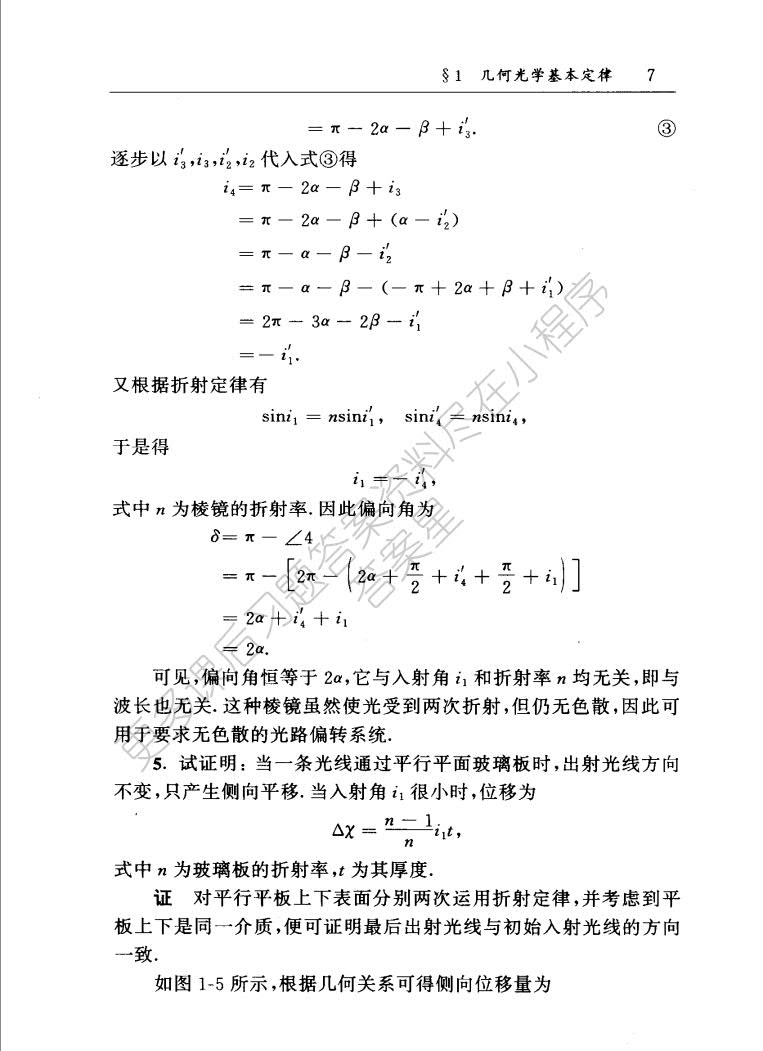 §1 几何光学基本定律 7
= π − 2α − β + i₃′. ③
逐步以 i₃′,i₃,i₂′,i₂ 代入式③得
i₄= π − 2α − β + i₃
= π − 2α − β + (α − i₂′)
= π − α − β − i₂′
= π − α − β − (− π + 2α + β + i₁′)
= 2π − 3α − 2β − i₁′
=− i₁′.
又根据折射定律有
sini₁ = nsini₁′, sini₄′ = nsini₄,
于是得
i₁ =− i₄′,
式中 n 为棱镜的折射率.因此偏向角为
δ= π − ∠4
= π − [2π − (2α + π/2 + i₄′ + π/2 + i₁)]
= 2α + i₄′ + i₁
= 2α.
可见,偏向角恒等于 2α,它与入射角 i₁ 和折射率 n 均无关,即与
波长也无关.这种棱镜虽然使光受到两次折射,但仍无色散,因此可
用于要求无色散的光路偏转系统.
5. 试证明:当一条光线通过平行平面玻璃板时,出射光线方向
不变,只产生侧向平移.当入射角 i₁ 很小时,位移为
Δχ = (n − 1)/n i₁t,
式中 n 为玻璃板的折射率,t 为其厚度.
证 对平行平板上下表面分别两次运用折射定律,并考虑到平
板上下是同一介质,便可证明最后出射光线与初始入射光线的方向
一致.
如图 1-5 所示,根据几何关系可得侧向位移量为
更多课后习题答案资料尽在小程序
答案星